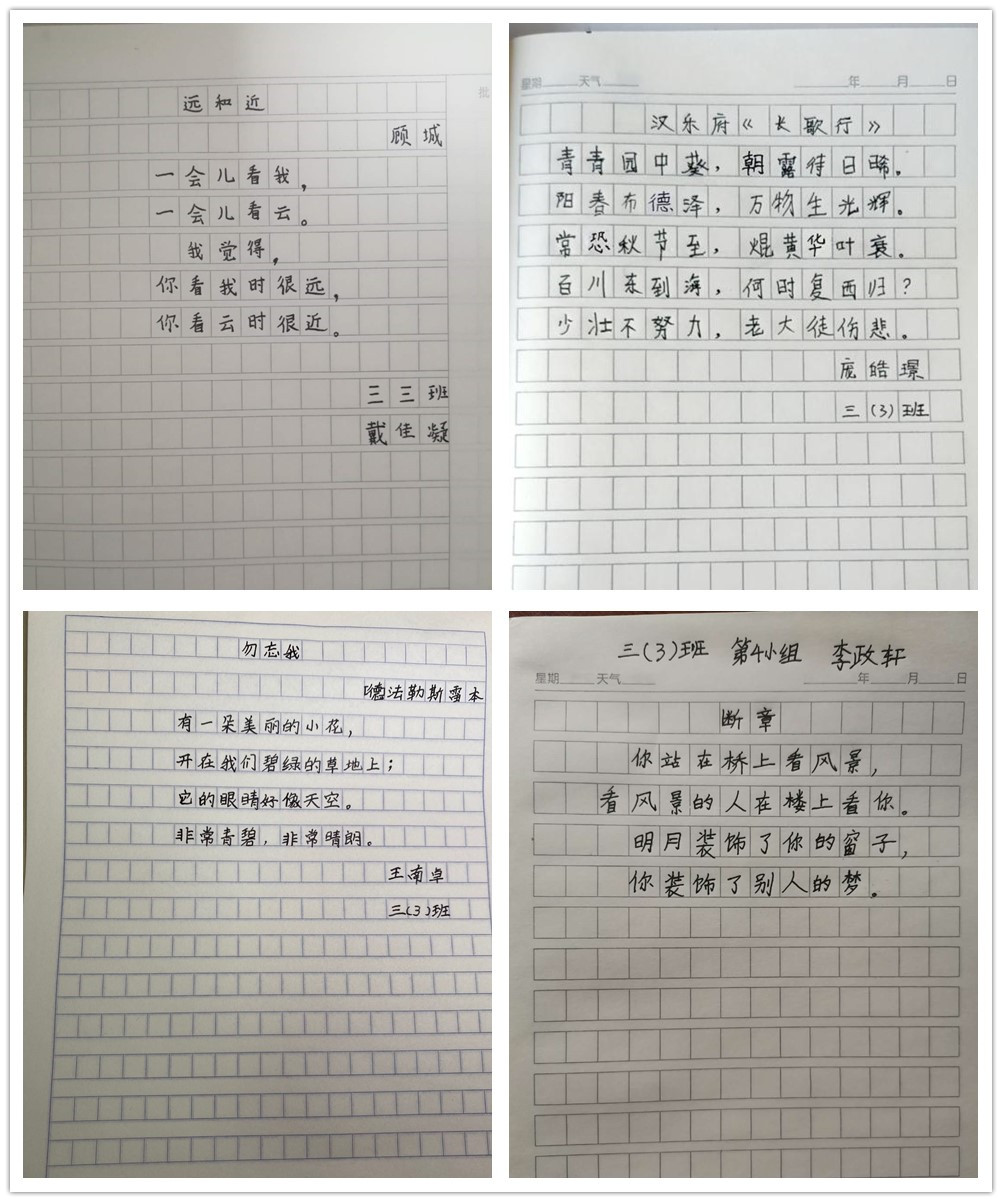 远和近
批
顾城
一会儿看我，
一会儿看云。
我觉得，
你看我时很远，
你看云时很近。
三三班
戴佳凝
星期 天气 年 月 日
汉乐府《长歌行》
青青园中葵，朝露待日晞。
阳春布德泽，万物生光辉。
常恐秋节至，焜黄华叶衰。
百川东到海，何时复西归？
少壮不努力，老大徒伤悲。
庞皓璟
三(3)班
勿忘我
「德法勒斯雷本
有一朵美丽的小花，
开在我们碧绿的草地上；
它的眼睛好像天空。
非常青碧，非常晴朗。
王南卓
三(3)班
三(3)班 第4小组 李政轩
星期 天气 年 月 日
断章
你站在桥上看风景，
看风景的人在楼上看你。
明月装饰了你的窗子，
你装饰了别人的梦。